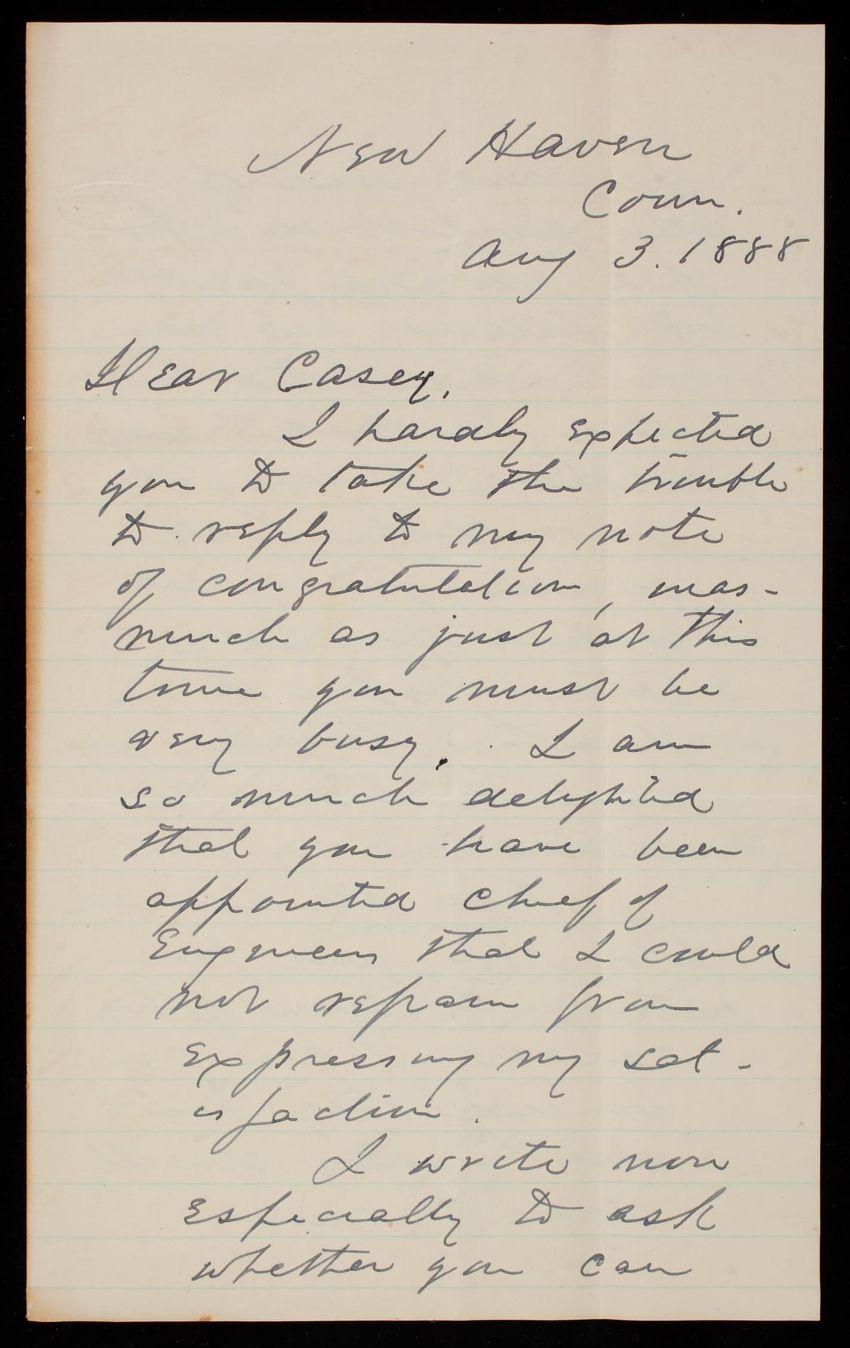 New Haven
Conn.
Aug 3. 1888
Dear Casey,
I hardly expected
you to take the trouble
to reply to my note
of congratulation, inas-
much as just at this
time you must be
very busy. I am
so much delighted
that you have been
appointed Chief of
Engineers that I could
not refrain from
expressing my sat-
isfaction.
I write now
especially to ask
whether you can